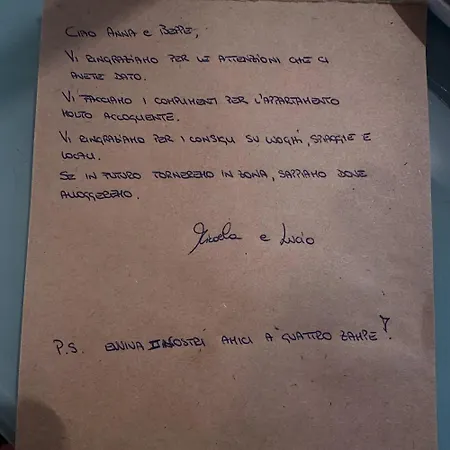 CIAO ANNA E BEPPE,
VI RINGRAZIAMO PER LE ATTENZIONI CHE CI
AVETE DATO.
VI FACCIAMO I COMPLIMENTI PER L'APPARTAMENTO
MOLTO ACCOGLIENTE.
VI RINGRAZIAMO PER I CONSIGLI SU LUOGHI, SPIAGGIE E
LOCALI.
SE IN FUTURO TORNEREMO IN ZONA, SAPPIAMO DOVE
ALLOGGEREMO.
e Lucio
P.S. EVVIVA I NOSTRI AMICI A QUATTRO ZAMPE!